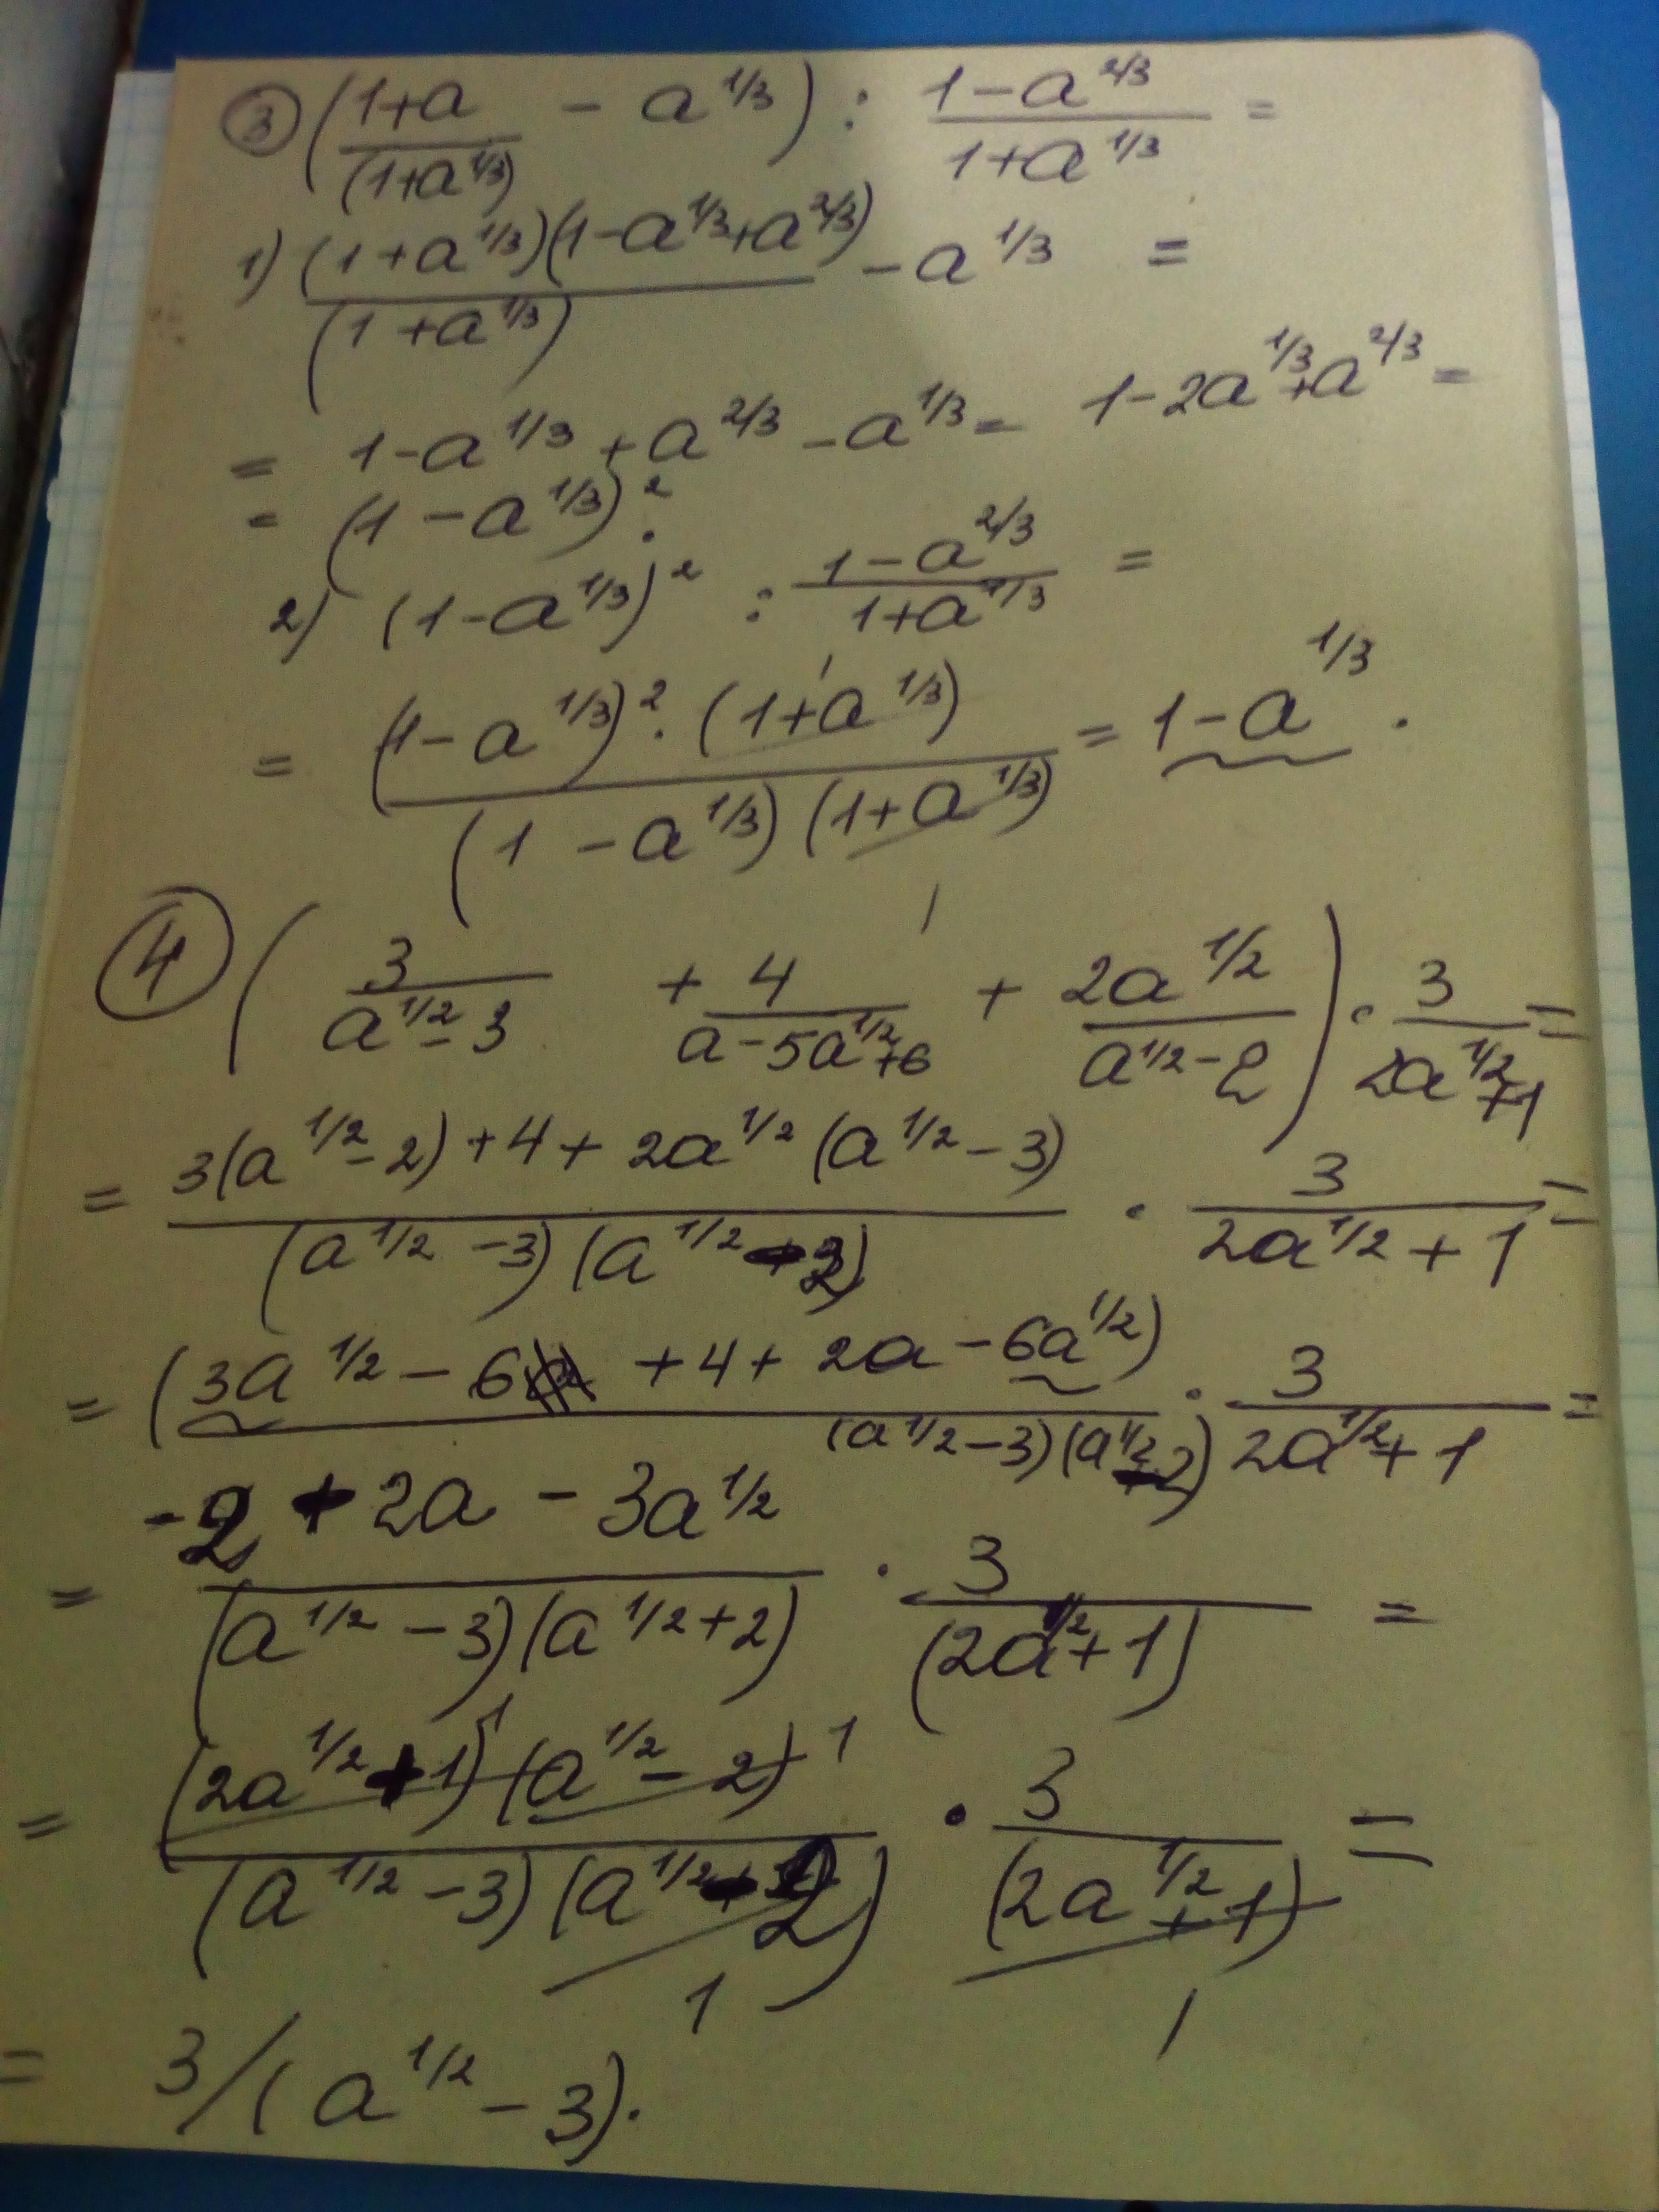 ③ ( (1+a)/(1+a^1/3) − a^1/3 ) : (1−a^2/3)/(1+a^1/3) =
1) (1+a^1/3)(1−a^1/3+a^2/3)/(1+a^1/3) − a^1/3 =
= 1−a^1/3 + a^2/3 − a^1/3 = 1−2a^1/3+a^2/3 =
= (1−a^1/3)^2.
2) (1−a^1/3)^2 : (1−a^2/3)/(1+a^1/3) =
= (1−a^1/3)^2 · (1+a^1/3) / (1−a^1/3)(1+a^1/3) = 1−a^1/3.
④ ( 3/(a^1/2−3) + 4/(a−5a^1/2+6) + 2a^1/2/(a^1/2−2) ) · 3/(2a^1/2+1) =
= (3(a^1/2−2)+4+2a^1/2(a^1/2−3)) / (a^1/2−3)(a^1/2−2) · 3/(2a^1/2+1) =
= (3a^1/2−6+4+2a−6a^1/2) / (a^1/2−3)(a^1/2−2) · 3/(2a^1/2+1) =
= (−2+2a−3a^1/2) / (a^1/2−3)(a^1/2+2) · 3/(2a^1/2+1) =
= (2a^1/2+1)^1 (a^1/2−2)^1 / (a^1/2−3)(a^1/2−2) · 3/(2a^1/2+1) =
1 1
= 3/(a^1/2−3).